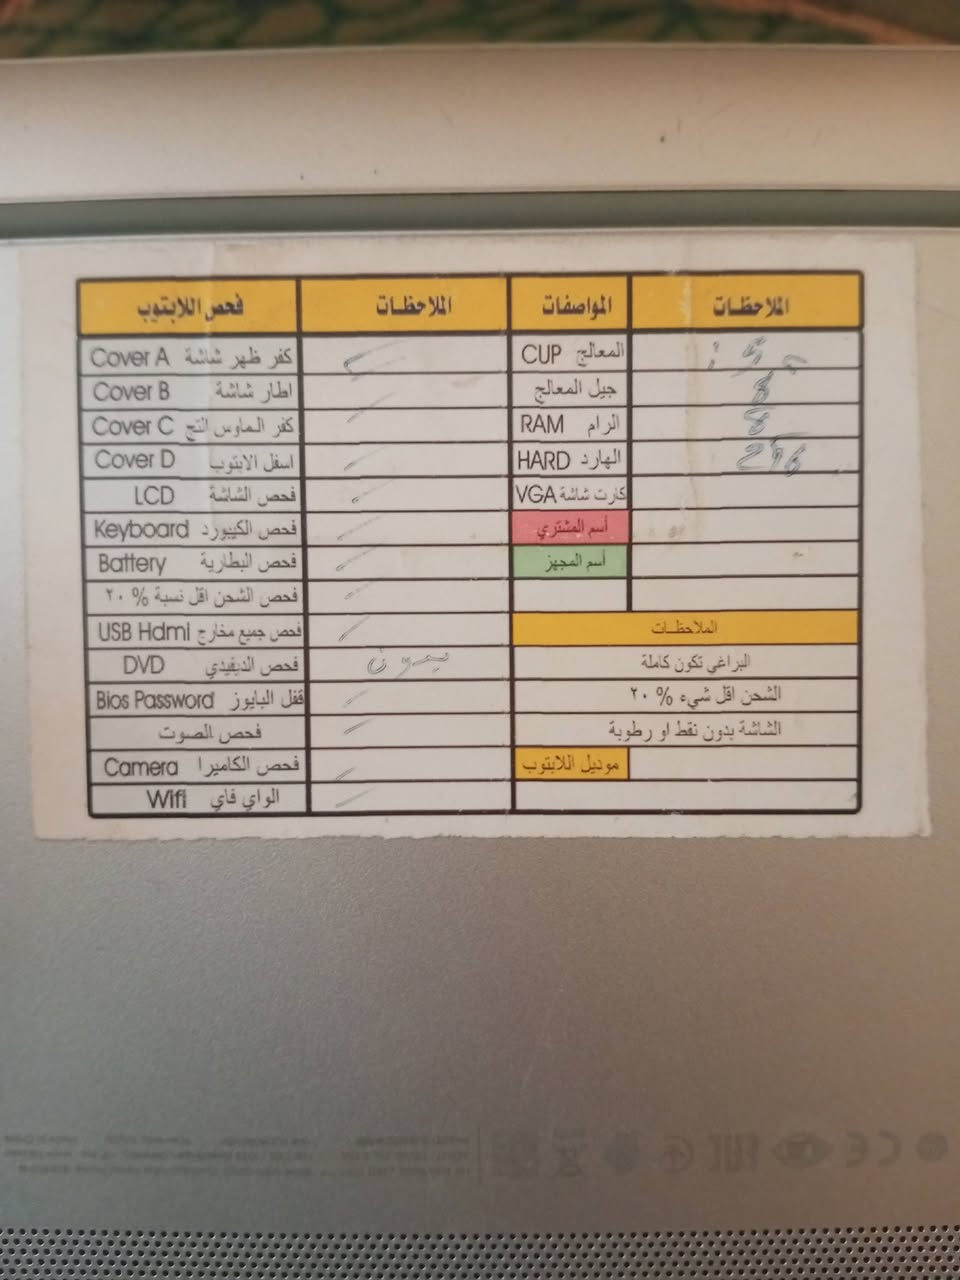 فحص اللابتوب الملاحظات المواصفات الملاحظات
Cover A كفر ظهر شاشة CUP المعالج
Cover B اطار شاشة جيل المعالج 8
Cover C كفر الماوس التج RAM الرام 8
Cover D اسفل الابتوب HARD الهارد 256
LCD فحص الشاشة VGA كارت شاشة
Keyboard فحص الكيبورد أسم المشتري
Battery فحص البطارية أسم المجهز
فحص الشحن اقل نسبة % ٢٠
USB Hdmi فحص جميع مخارج الملاحظات
DVD فحص الديفيدي بدون البراغي تكون كاملة
Bios Password قفل البايوز الشحن اقل شيء % ٢٠
فحص الصوت الشاشة بدون نقط او رطوبة
Camera فحص الكاميرا موديل اللابتوب
Wifi الواي فاي